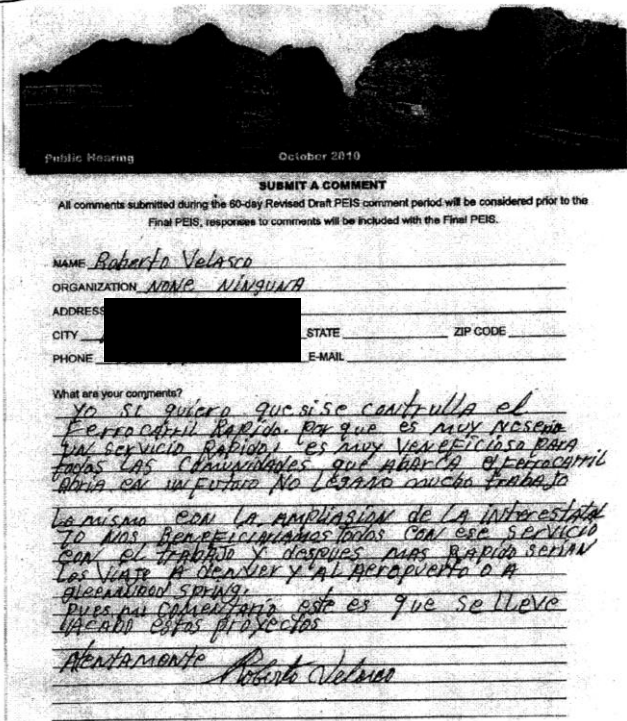 Public Hearing October 2010
SUBMIT A COMMENT
All comments submitted during the 60-day Revised Draft PEIS comment period will be considered prior to the
Final PEIS, responses to comments will be included with the Final PEIS.
NAME Roberto Velasco
ORGANIZATION NONE NINGUNA
ADDRESS
CITY STATE ZIP CODE
PHONE E-MAIL
What are your comments?
Yo si quiero que si se contrulla el
Ferrocarril Rapido. Por que es muy neseria
un servicio Rapido, es muy veneficioso para
todas las comunidades que abarca el Ferrocarril
abria en un futuro no legano mucho trabajo
Lo mismo con la ampliasion de la interestatal
70 nos beneficiariamos todos con ese servicio
con el trabajo y despues mas rapido serian
los viaje a denver y al aeropuerto o a
gleenwood Spring.
Pues mi comentario este es que se lleve
acabo estos proyectos
Atentamente Roberto Velasco